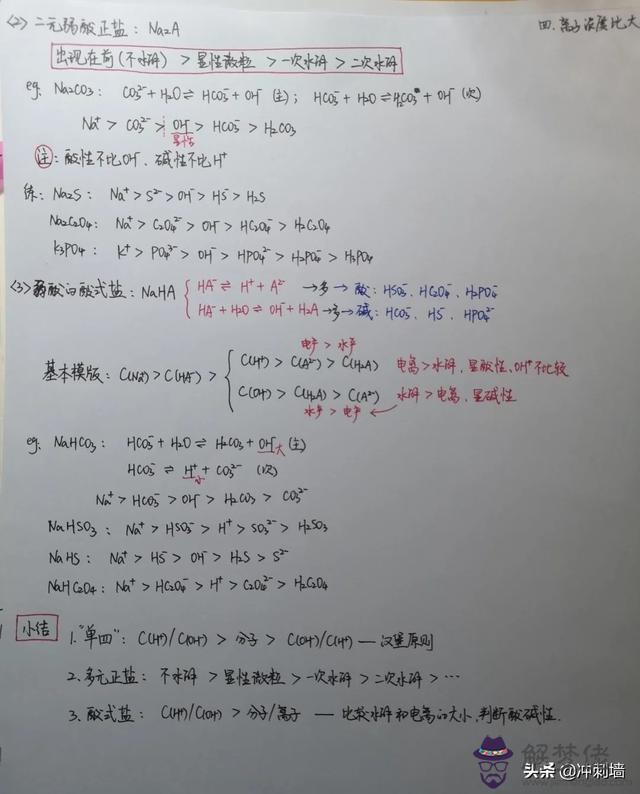 四. 离子浓度比大
<2> 二元弱酸正盐: Na₂A
出现在前(不水解) > 显性微粒 > 一次水解 > 二次水解
eg. Na₂CO₃: CO₃²⁻ + H₂O ⇌ HCO₃⁻ + OH⁻ (主); HCO₃⁻ + H₂O ⇌ H₂CO₃ + OH⁻ (次)
Na⁺ > CO₃²⁻ > OH⁻ > HCO₃⁻ > H₂CO₃
显性
注: 酸性不比OH⁻、碱性不比H⁺
练: Na₂S: Na⁺ > S²⁻ > OH⁻ > HS⁻ > H₂S
Na₂C₂O₄: Na⁺ > C₂O₄²⁻ > OH⁻ > HC₂O₄⁻ > H₂C₂O₄
K₃PO₄: K⁺ > PO₄³⁻ > OH⁻ > HPO₄²⁻ > H₂PO₄⁻ > H₃PO₄
<3> 弱酸的酸式盐: NaHA { HA⁻ ⇌ H⁺ + A²⁻ → 多 → 酸: HSO₃⁻、HC₂O₄⁻、H₂PO₄⁻
HA⁻ + H₂O ⇌ OH⁻ + H₂A → 多 → 碱: HCO₃⁻、HS⁻、HPO₄²⁻
电产 > 水产
基本模版: C(Na⁺) > C(HA⁻) > { C(H⁺) > C(A²⁻) > C(H₂A) 电离 > 水解, 显酸性, OH⁻不比较
C(OH⁻) > C(H₂A) > C(A²⁻) 水解 > 电离, 显碱性
水产 > 电产
eg. NaHCO₃: HCO₃⁻ + H₂O ⇌ H₂CO₃ + OH⁻大 (主)
HCO₃⁻ ⇌ H⁺ + CO₃²⁻ (次)
小
Na⁺ > HCO₃⁻ > OH⁻ > H₂CO₃ > CO₃²⁻
NaHSO₃: Na⁺ > HSO₃⁻ > H⁺ > SO₃²⁻ > H₂SO₃
NaHS: Na⁺ > HS⁻ > OH⁻ > H₂S > S²⁻
NaHC₂O₄: Na⁺ > HC₂O₄⁻ > H⁺ > C₂O₄²⁻ > H₂C₂O₄
小结 1. "单四": C(H⁺)/C(OH⁻) > 分子 > C(OH⁻)/C(H⁺) — 汉堡原则
2. 多元正盐: 不水解 > 显性微粒 > 一次水解 > 二次水解 > …
3. 酸式盐: C(H⁺)/C(OH⁻) > 分子/离子 — 比较水解和电离的大小, 判断酸碱性.
解梦佬
头条 @冲刺墙